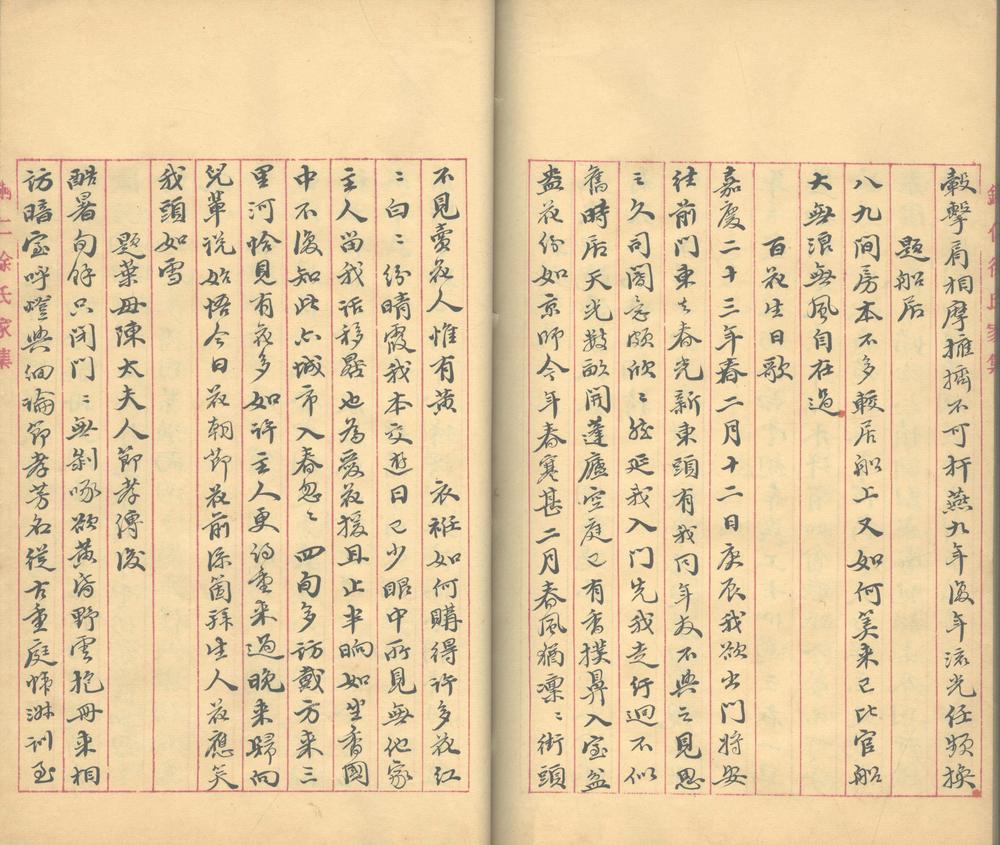 轂擊肩相摩擁擠不可扞燕九年復年流光任頻換
題船居
八九間房本不多較居船上又如何笑来已比官船
大無浪無風自在過
百花生日歌
嘉慶二十三年春二月十二日庚辰我欲出門將安
往前門東去春光新東頭有我同年友不與之見思
之久司閽意頗欣〻延我入門先我走行迴不似
舊時居天光數畝開蓬廬空庭已有香撲鼻入室盆
盎花份如京師今年春寒甚二月春風猶凛〻街頭
不見賣花人惟有黄 衣袵如何購得許多花紅
〻白〻份晴霞我本交遊日已少眼中所見無他家
主人留我話移晷也為愛花援且止半晌如坐香國
中不復知此亦城市入春忽〻四旬多訪戴方来三
里河恰見有花多如許主人更約重来過晚来歸向
兒輩說始悟今日花朝節花前添箇拜生人花應笑
我頭如雪
題葉母陳太夫人節孝傳後
酷暑旬餘只閉門〻無剝啄欲黄昏野雲抱冊来相
訪暗室呼燈與細論節孝芳名從古重庭幃淋訓至
徐氏家集